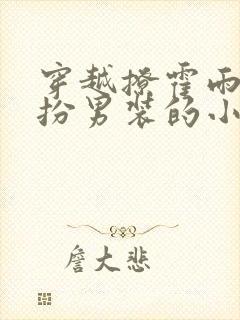 穿越撩霍雨
扮男装的小
詹大悲